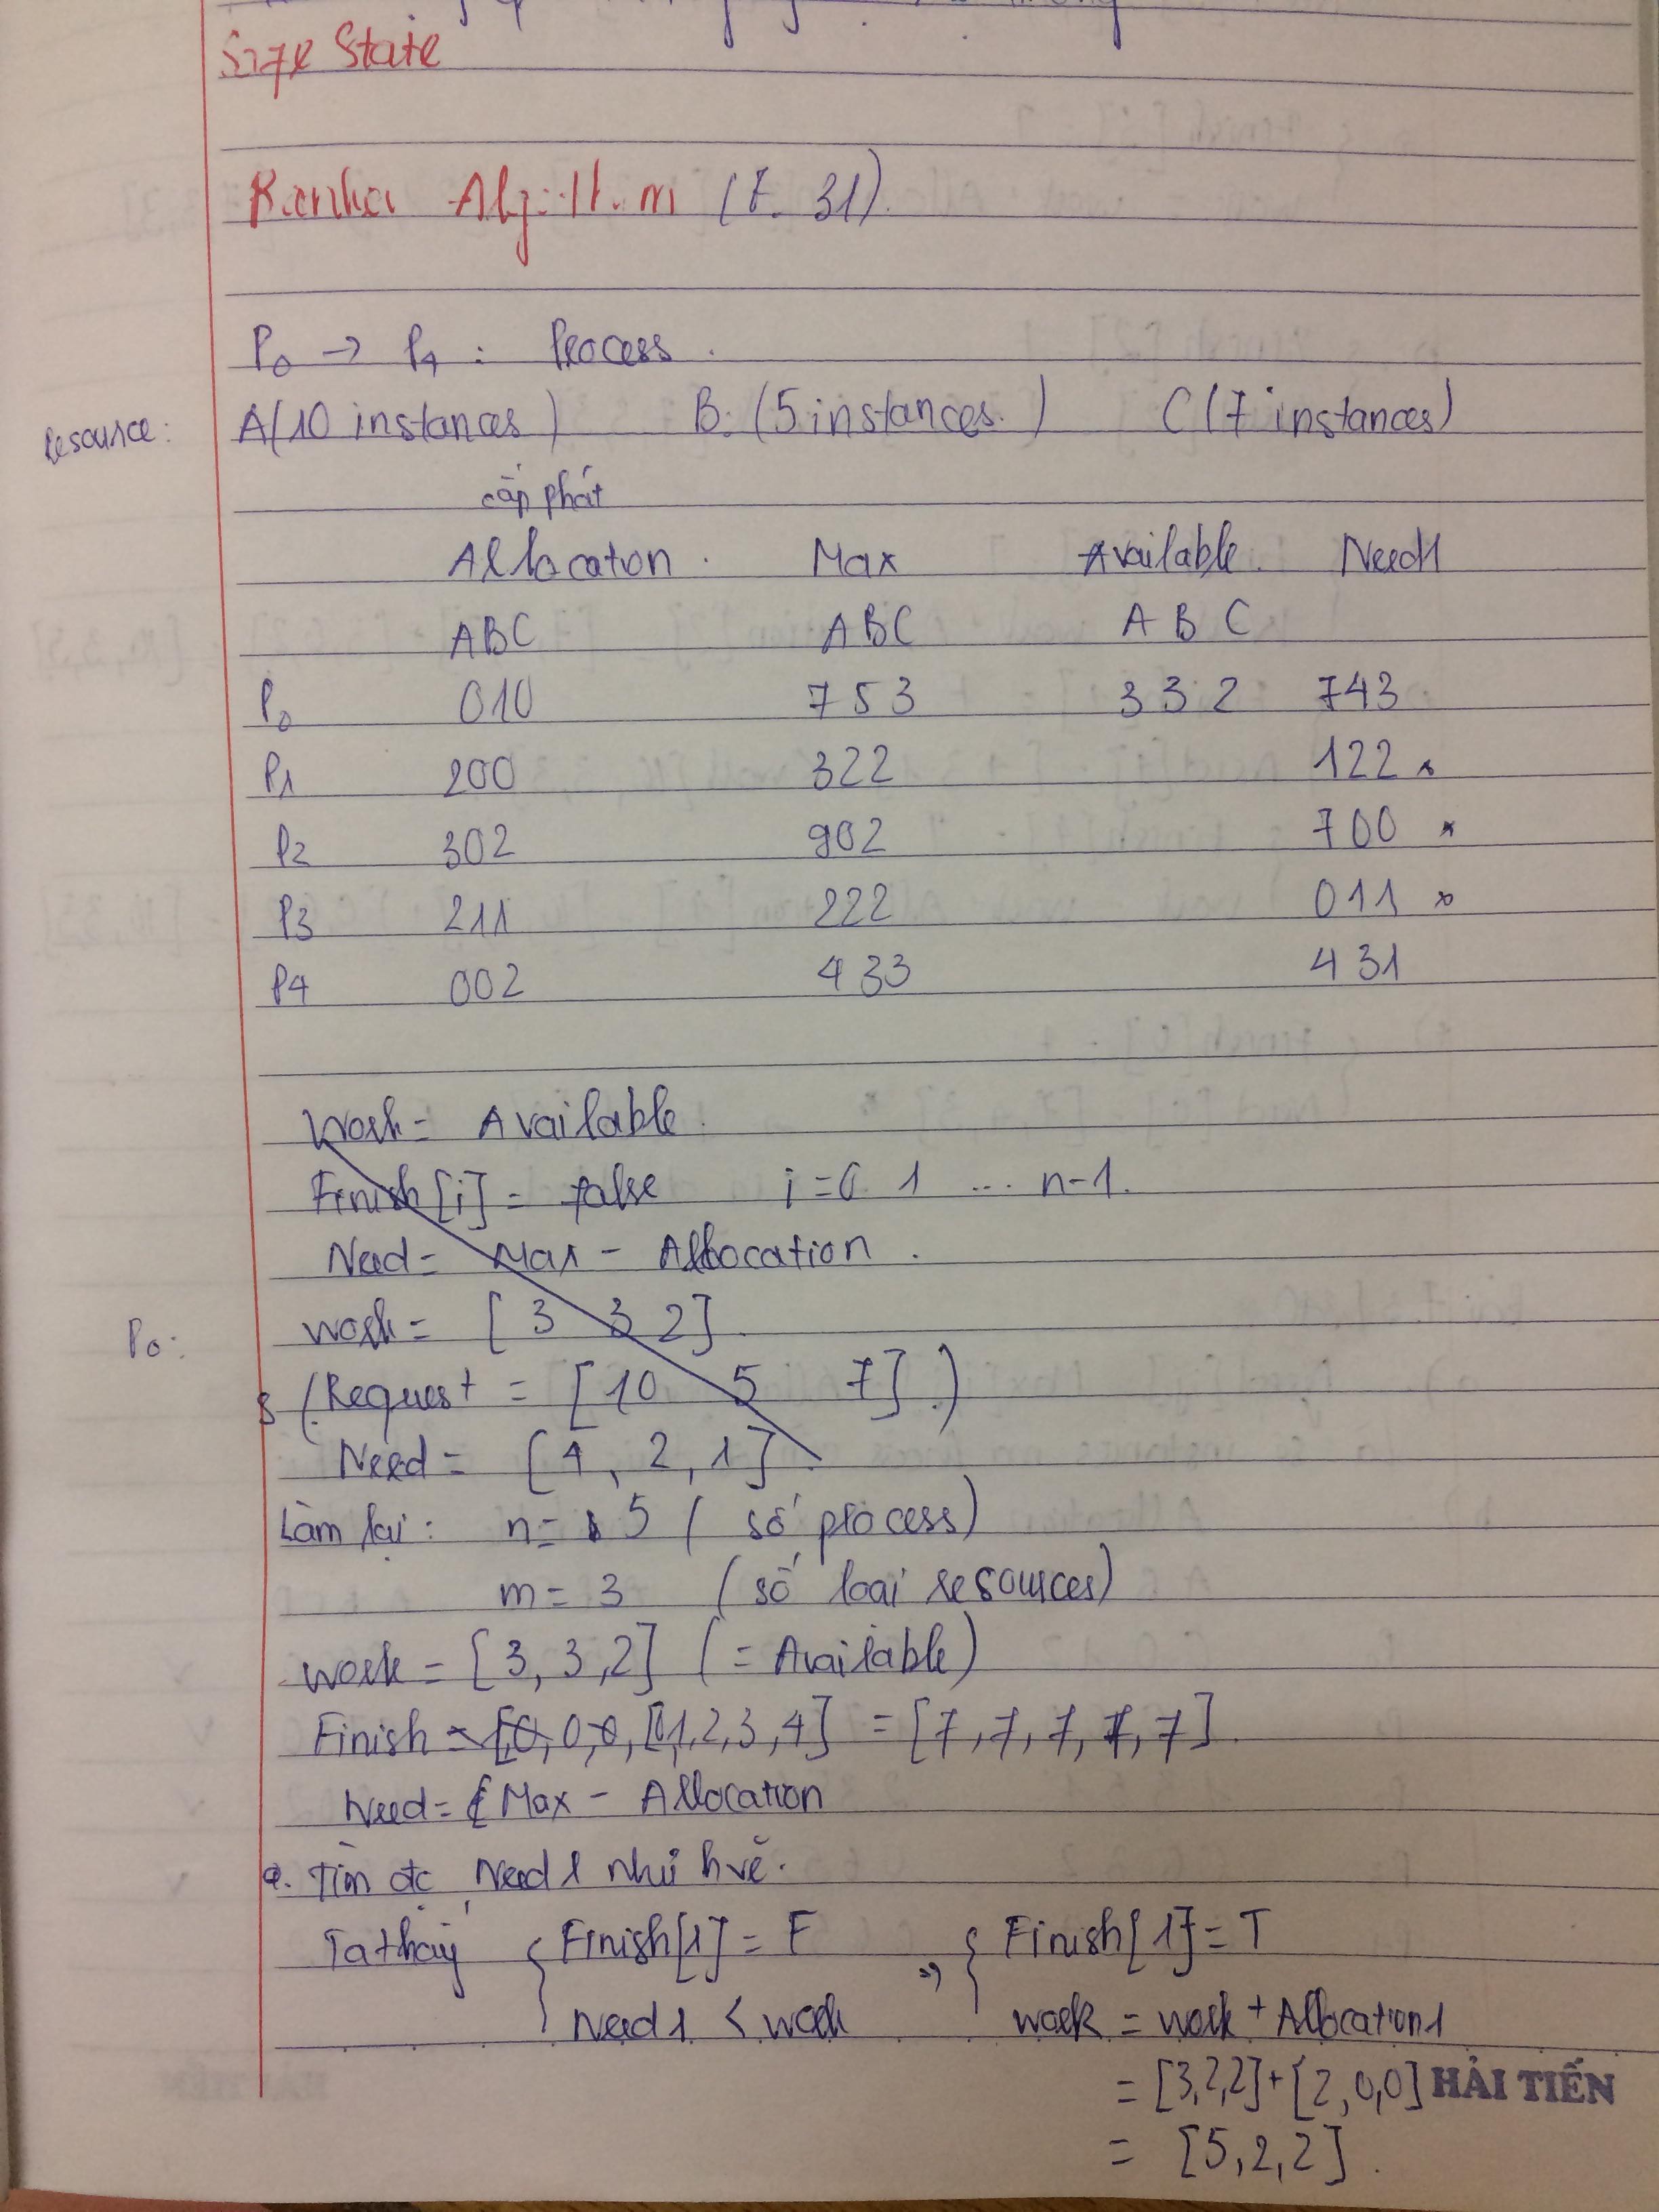 Safe State
Banker Algorithm (7.31).
P0 → P4 : Process.
Resource: A(10 instances) B: (5 instances.) C (7 instances)
cấp phát
Allocaton. Max Available. Need
ABC ABC A B C
P0 010 753 3 3 2 743
P1 200 322 122 *
P2 302 902 700 *
P3 211 222 011 *
P4 002 433 431
Work = Available.
Finish[i] = false i = 0 1 ... n-1.
Need = Max - Allocation.
P0: work = [3 3 2].
(Request = [10 5 7].)
Need = [4, 2, 1]
Làm lại: n = 5 (số process)
m = 3 (số loại resources)
work = [3, 3, 2] (= Available)
Finish = [0, 0, 0, [0,1,2,3,4] = [7, 7, 7, 7, 7].
Need = Max - Allocation
Tìm đc Need như hvẽ.
Ta thấy { Finish[1] = F => { Finish[1] = T
Need1 < work work = work + Allocation1
= [3,2,2] + [2,0,0] HẢI TIẾN
= [5,2,2].